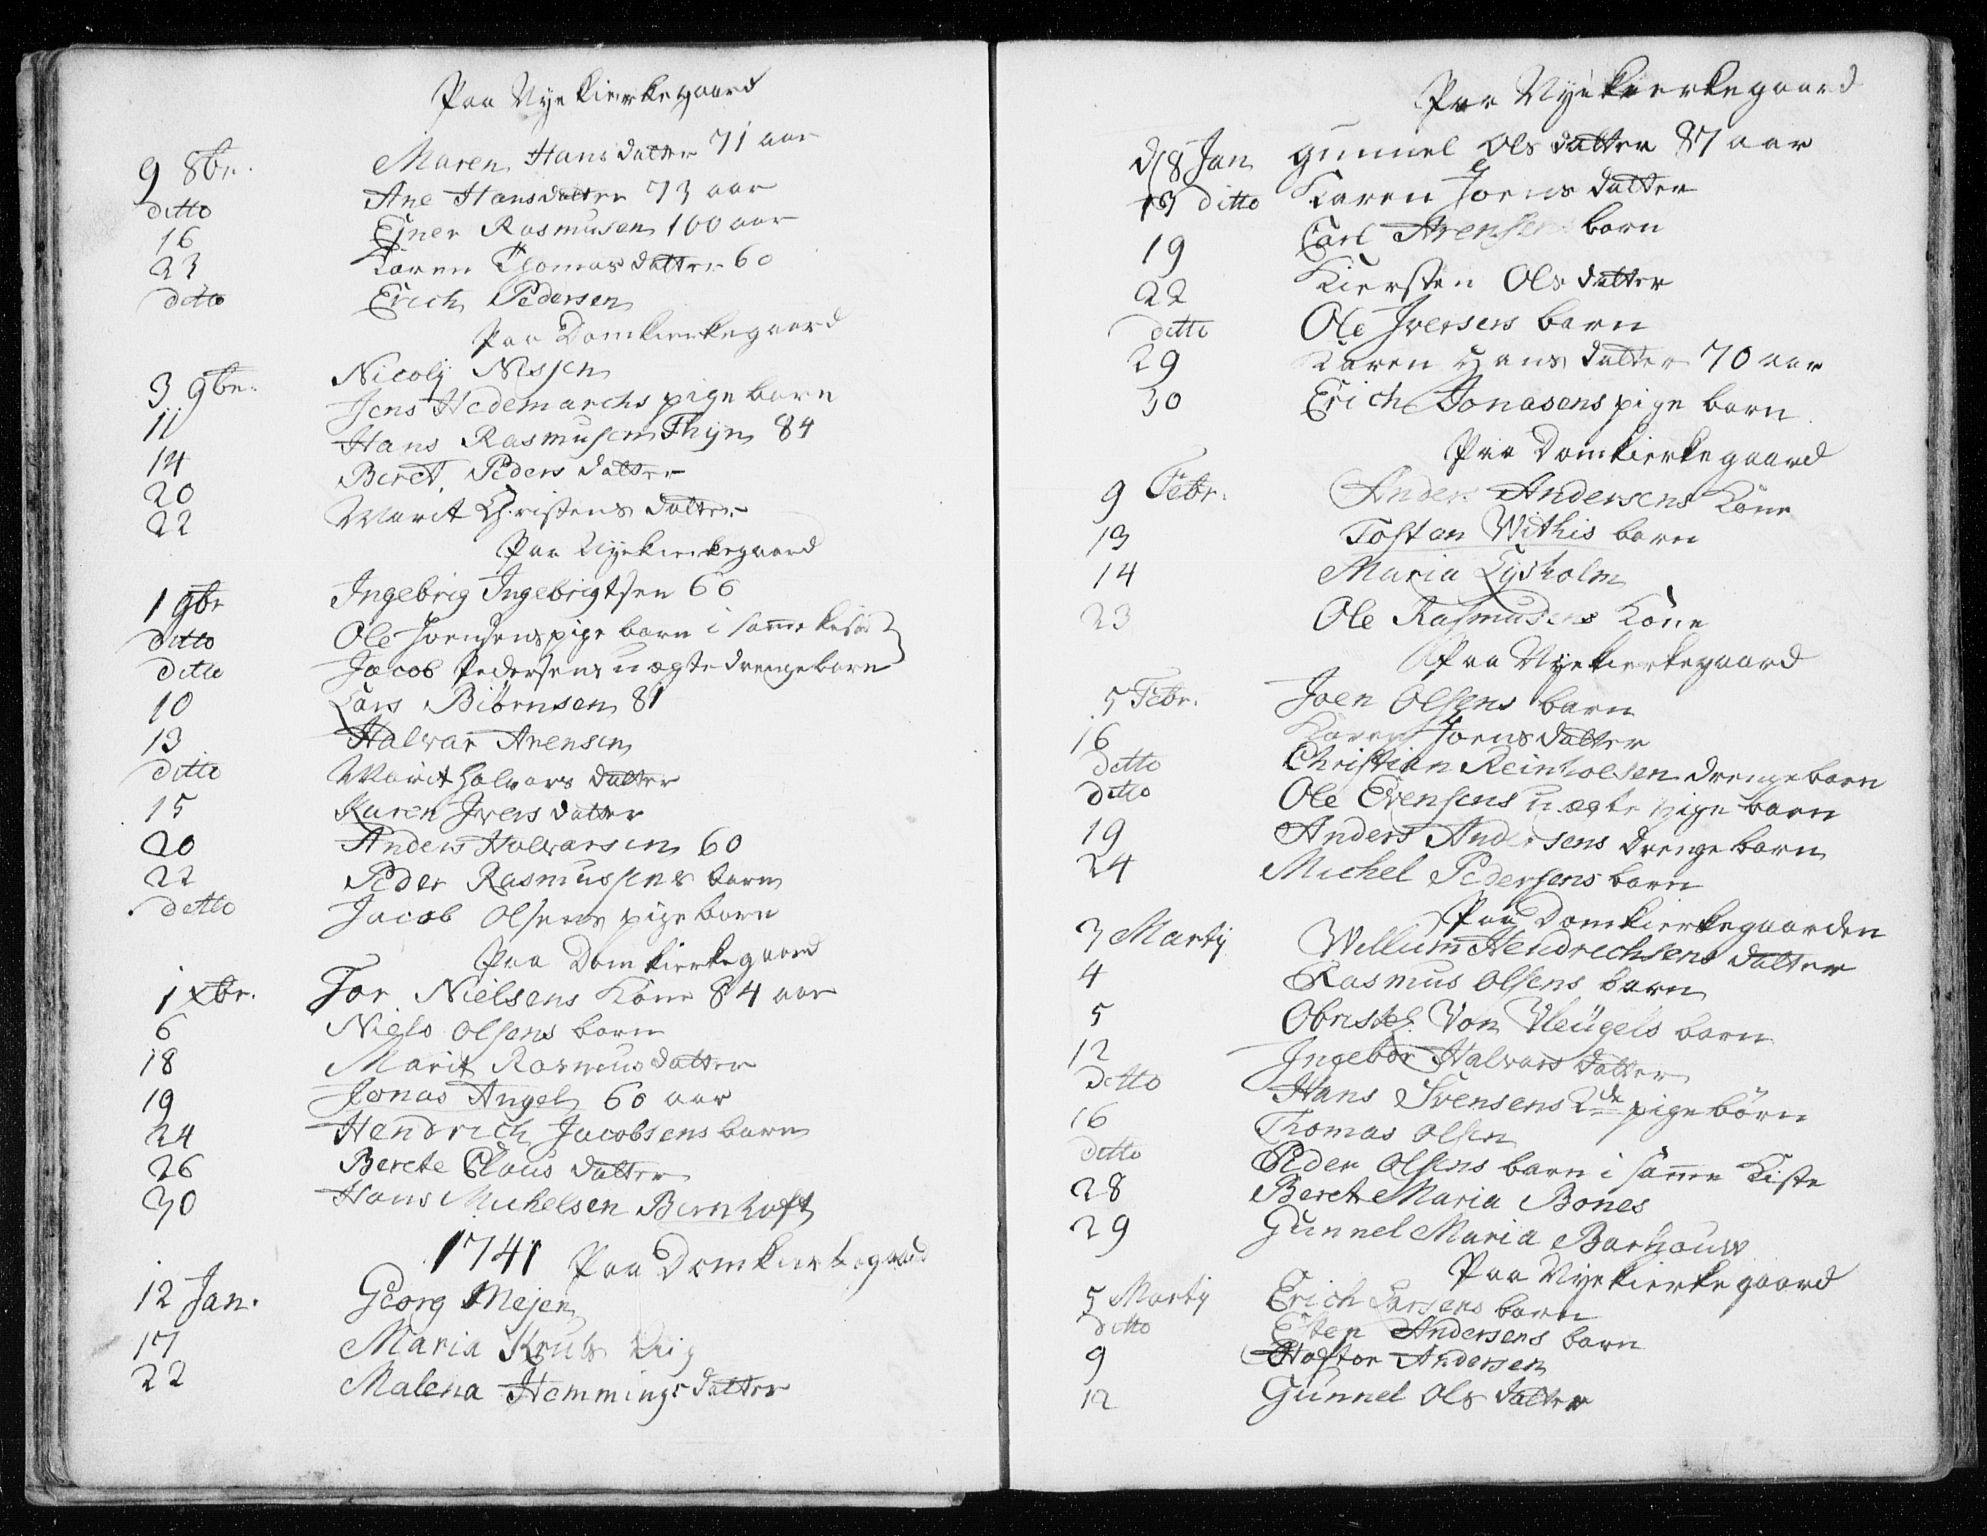 Paa Nyekierkegaard
9 8br. Maren Hansdatter 71 aar
ditto Ane Hansdatter 73 aar
16 Ejner Rasmusen 100 aar
23 Karen Thomasdatter 60
ditto Erich Pedersen
Paa Domkierkegaard
3 9br. Nicolij Nissen
11 Jens Hedemarchs pige barn
14 Hans Rasmusen Thyn 84
20 Beret Pedersdatter
22 Marit Christens datter
Paa Nyekierkegaard
1 9br Ingebrig Ingebrigtsen 66
ditto Ole Joensens pige barn i samme kiste
ditto Jacob Pedersens uægte drengebarn
10 Lars Biörnsen 81
13 Halvar Arensen
ditto Marit Halvars datter
15 Karen Ivers datter
20 Anders Halvarsen 60
22 Peder Rasmussens barn
ditto Jacob Olsens pige barn
Paa Domkierkegaard
1 xbr. Tor Nielsens Kone 84 aar
6 Niels Olsens barn
18 Marit Rasmusdatter
19 Jonas Angel 60 aar
24 Hendrich Jacobsens barn
26 Berete Claus datter
30 Hans Michelsen Bernhoft
1741 Paa Domkierkegaard
12 Jan. Georg Mejer
17 Maria Kruls
22 Malena Hemmings datter
Paa Nyekierkegaard
d 8 Jan Gunnel Olsdatter 87 aar
13 ditto Karen Joens datter
19 Carl Arensens barn
22 Kiersten Olsdatter
ditto Ole Iversens barn
29 Karen Hans datter 70 aar
30 Erich Jonasens pige barn
Paa Domkierkegaard
9 Febr. Anders Andersens Kone
13 Tostan Withis barn
14 Maria Lysholm
23 Ole Rasmusens Kone
Paa Nyekierkegaard
5 Febr. Joen Olsens barn
16 Karen Joens datter
ditto Christian Reinholsen drengebarn
ditto Ole Evensens uægte pige barn
19 Anders Andersens drenge barn
24 Michel Pedersens barn
Paa Domkierkegaarden
3 Martij Willum Hendrechsens datter
4 Rasmus Olsens barn
5 Obrist Von Vleügels barn
12 Ingebor Halvars datter
ditto Hans Svensens 2de pigebörn
16 Thomas Olsen
ditto Peder Olsens barn i samme Kiste
28 Beret Maria Bones
29 Gunnel Maria Barhouw
Paa Nyekierkegaard
5 Martij Erich Larsens barn
ditto Esten Andersens barn
9 Haftor Andersen
12 Gunnel Ols datter